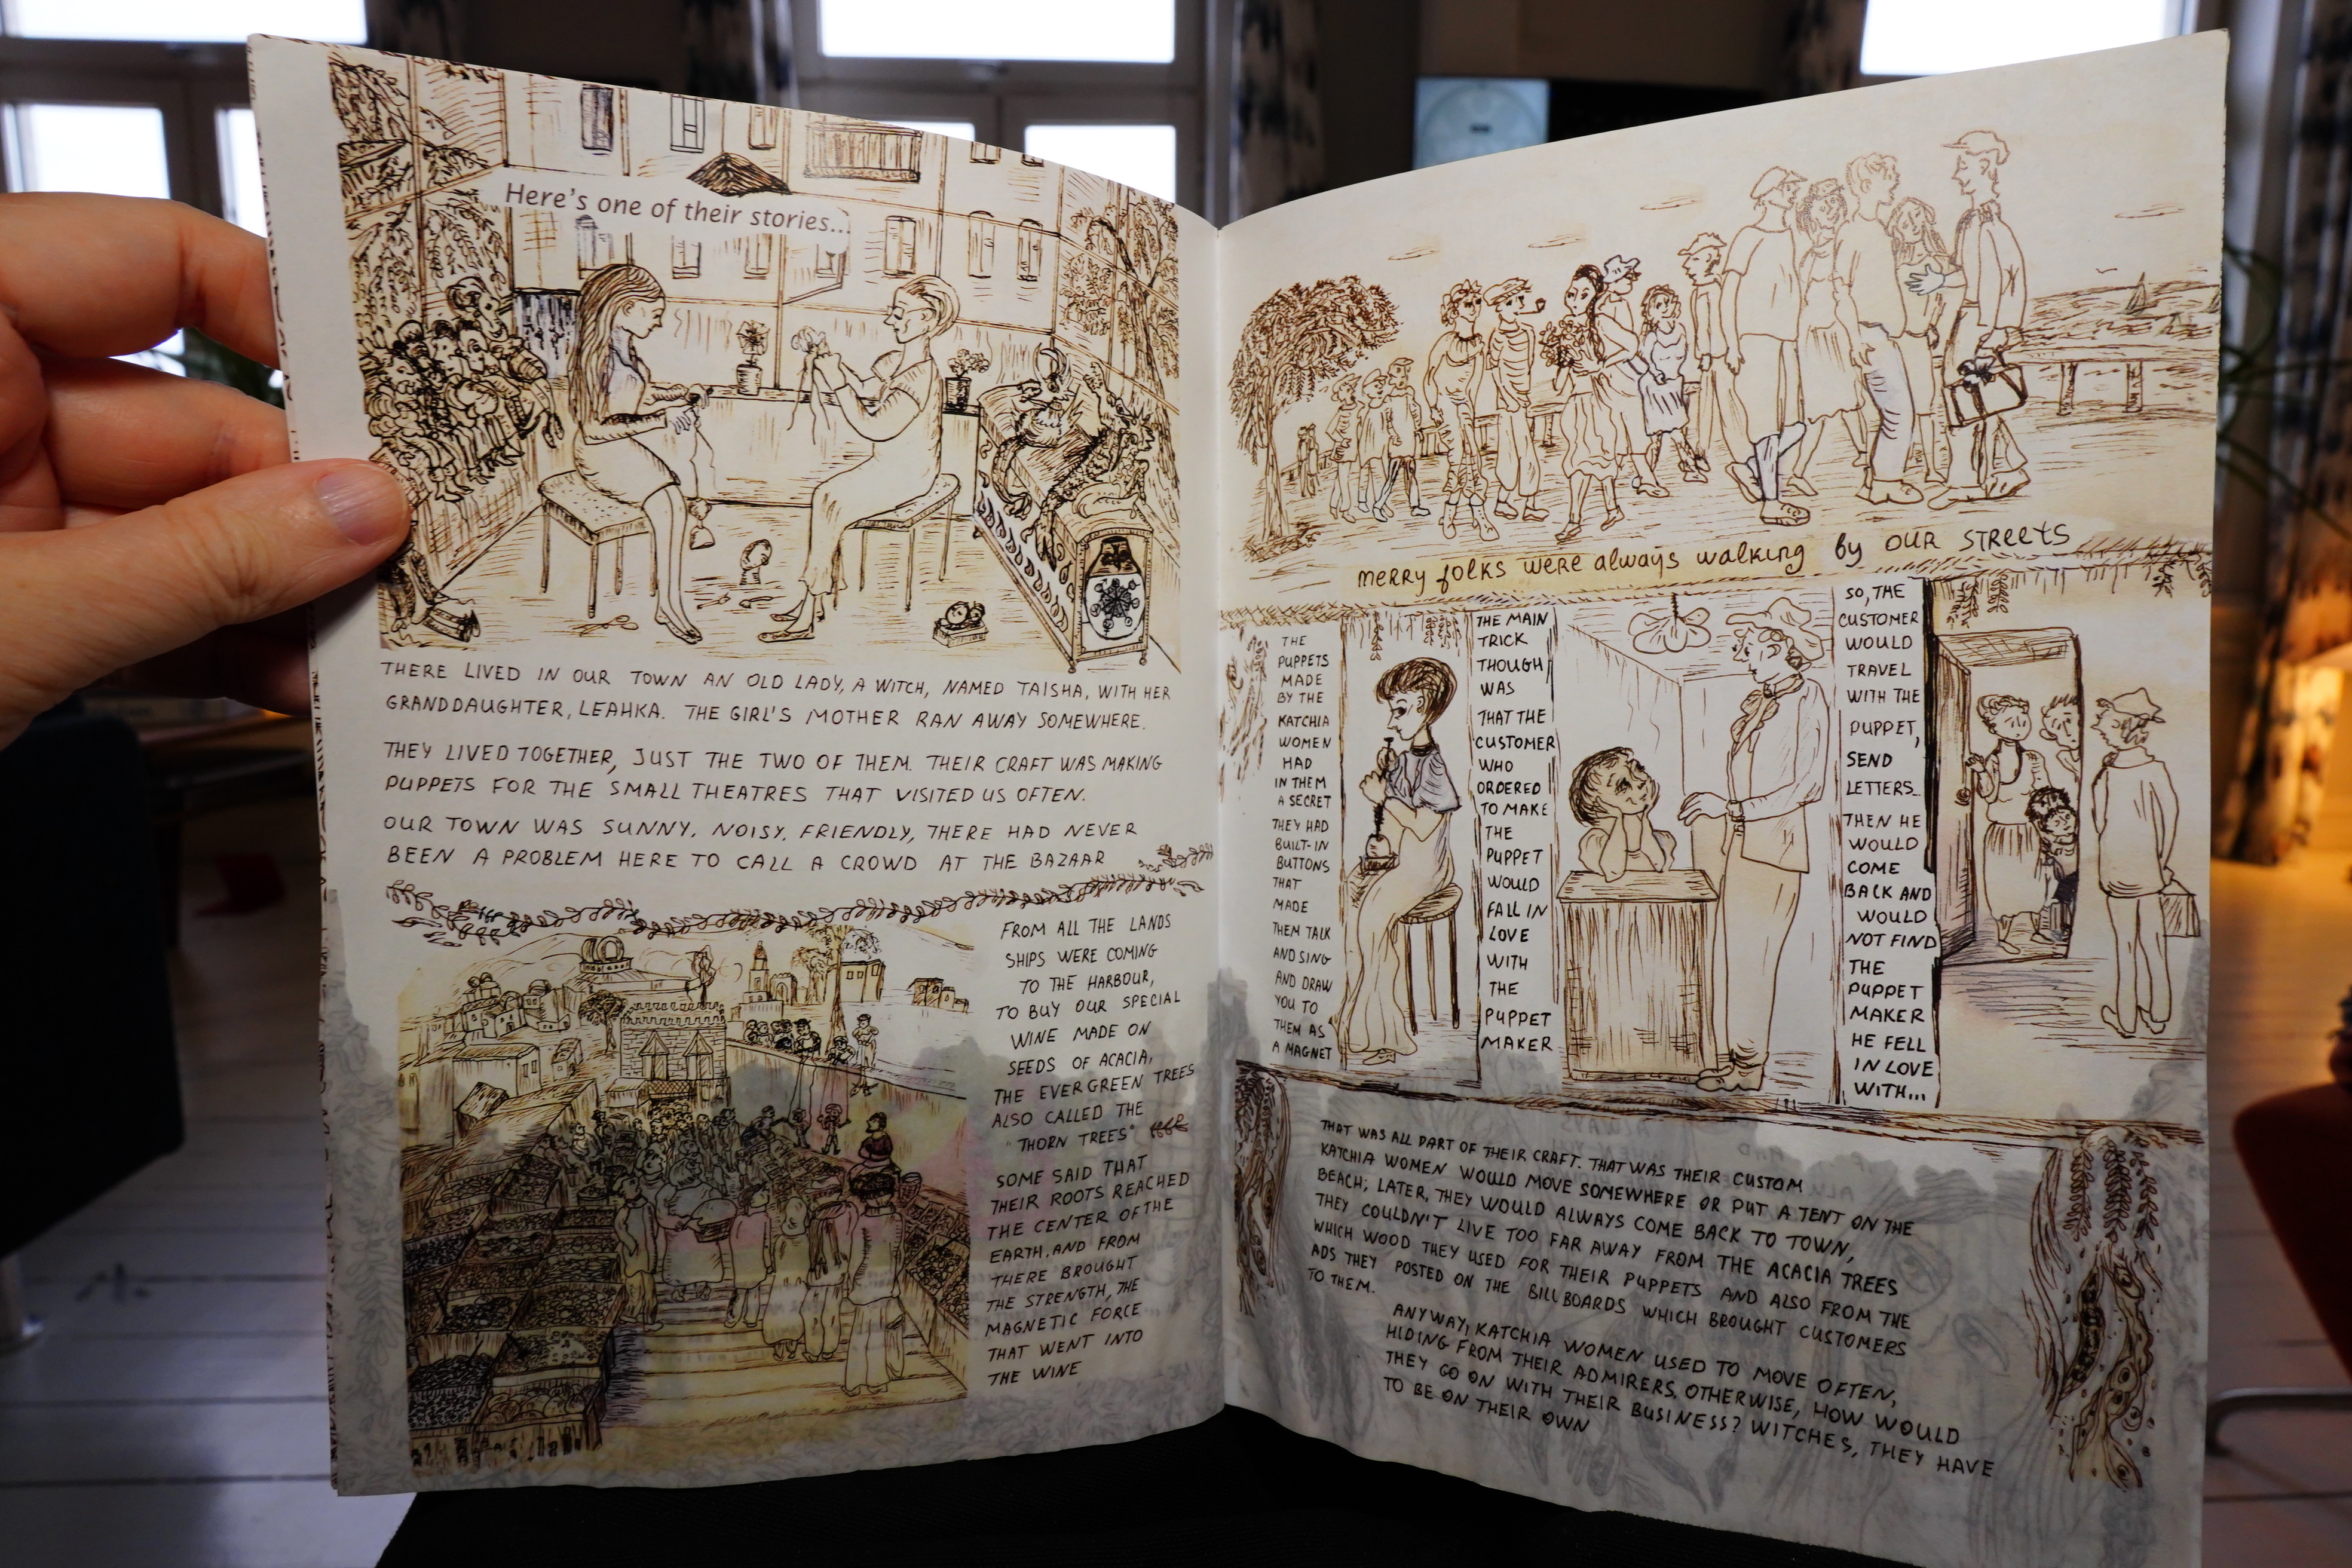 Here's one of their stories...
THERE LIVED IN OUR TOWN AN OLD LADY, A WITCH, NAMED TAISHA, WITH HER
GRANDDAUGHTER, LEAHKA. THE GIRL'S MOTHER RAN AWAY SOMEWHERE.
THEY LIVED TOGETHER, JUST THE TWO OF THEM. THEIR CRAFT WAS MAKING
PUPPETS FOR THE SMALL THEATRES THAT VISITED US OFTEN.
OUR TOWN WAS SUNNY, NOISY, FRIENDLY, THERE HAD NEVER
BEEN A PROBLEM HERE TO CALL A CROWD AT THE BAZAAR
FROM ALL THE LANDS
SHIPS WERE COMING
TO THE HARBOUR,
TO BUY OUR SPECIAL
WINE MADE ON
SEEDS OF ACACIA,
THE EVERGREEN TREES
ALSO CALLED THE
"THORN TREES"
SOME SAID THAT
THEIR ROOTS REACHED
THE CENTER OF THE
EARTH, AND FROM
THERE BROUGHT
THE STRENGTH, THE
MAGNETIC FORCE
THAT WENT INTO
THE WINE
merry folks were always walking by OUR STREETS
THE
PUPPETS
MADE
BY THE
KATCHIA
WOMEN
HAD
IN THEM
A SECRET
THEY HAD
BUILT-IN
BUTTONS
THAT
MADE
THEM TALK
AND SING
AND DRAW
YOU TO
THEM AS
A MAGNET
THE MAIN
TRICK
THOUGH
WAS
THAT THE
CUSTOMER
WHO
ORDERED
TO MAKE
THE
PUPPET
WOULD
FALL IN
LOVE
WITH
THE
PUPPET
MAKER
SO, THE
CUSTOMER
WOULD
TRAVEL
WITH THE
PUPPET,
SEND
LETTERS...
THEN HE
WOULD
COME
BACK AND
WOULD
NOT FIND
THE
PUPPET
MAKER
HE FELL
IN LOVE
WITH...
THAT WAS ALL PART OF THEIR CRAFT. THAT WAS THEIR CUSTOM
KATCHIA WOMEN WOULD MOVE SOMEWHERE OR PUT A TENT ON THE
BEACH; LATER, THEY WOULD ALWAYS COME BACK TO TOWN,
THEY COULDN'T LIVE TOO FAR AWAY FROM THE ACACIA TREES
WHICH WOOD THEY USED FOR THEIR PUPPETS AND ALSO FROM THE
ADS THEY POSTED ON THE BILLBOARDS WHICH BROUGHT CUSTOMERS
TO THEM.
ANYWAY, KATCHIA WOMEN USED TO MOVE OFTEN,
HIDING FROM THEIR ADMIRERS. OTHERWISE, HOW WOULD
THEY GO ON WITH THEIR BUSINESS? WITCHES, THEY HAVE
TO BE ON THEIR OWN